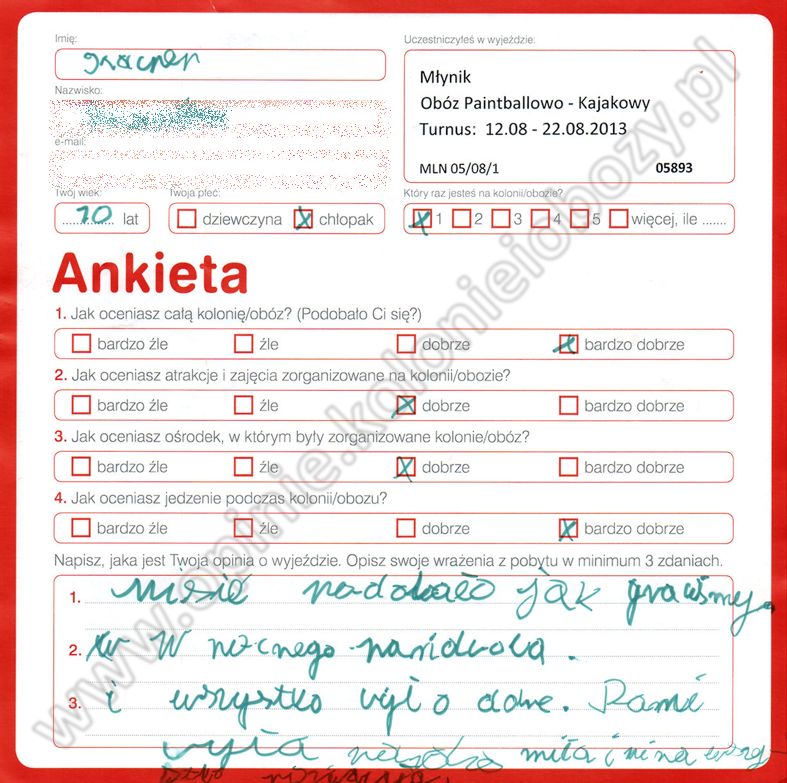 Imię:
Uczestniczyłeś w wyjeździe:
Młynik
Obóz Paintballowo - Kajakowy
Turnus: 12.08 - 22.08.2013
MLN 05/08/1 05893
Nazwisko:
e-mail:
Twój wiek:
10 lat
Twoja płeć:
dziewczyna x chłopak
Który raz jesteś na kolonii/obozie?
x 1 2 3 4 5 więcej, ile .......
Ankieta
1. Jak oceniasz całą kolonię/obóz? (Podobało Ci się?)
bardzo źle źle dobrze x bardzo dobrze
2. Jak oceniasz atrakcje i zajęcia zorganizowane na kolonii/obozie?
bardzo źle źle x dobrze bardzo dobrze
3. Jak oceniasz ośrodek, w którym były zorganizowane kolonie/obóz?
bardzo źle źle x dobrze bardzo dobrze
4. Jak oceniasz jedzenie podczas kolonii/obozu?
bardzo źle źle dobrze x bardzo dobrze
Napisz, jaka jest Twoja opinia o wyjeździe. Opisz swoje wrażenia z pobytu w minimum 3 zdaniach.
1. jak graliśmy
2. W
3. i wszystko
miła i
www.opinie.kolonieiobozy.pl